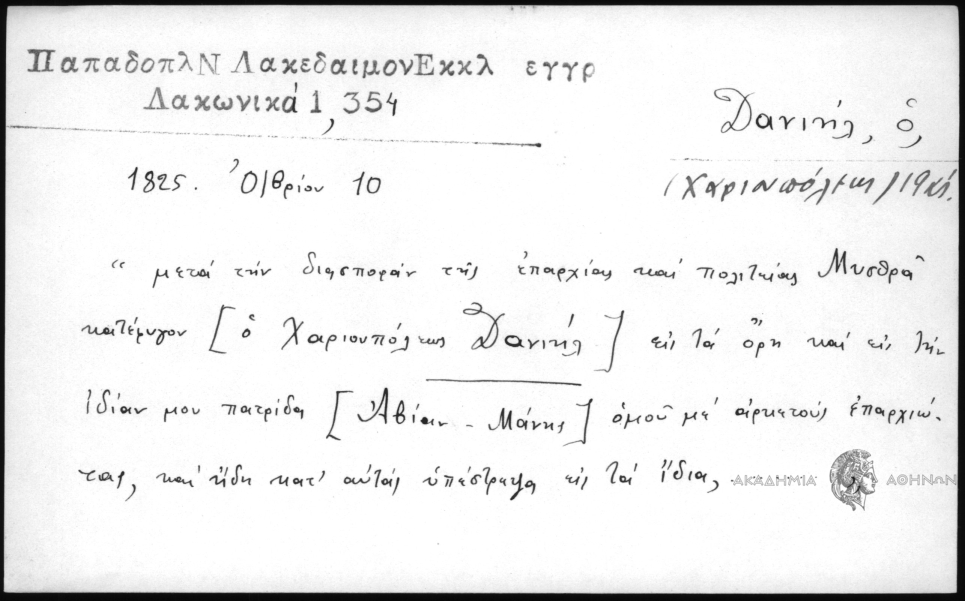 ΠαπαδοπλΝ ΛακεδαιμονΕκκλ εγγρ
Λακωνικά 1, 354
Δανιήλ, ὁ,
(Χαριουπόλεως) 19 αἰ.
1825. Ὀ)βρίου 10
“ μετά τήν διασποράν τῆς ἐπαρχίας καί πολιτείας Μυσθρᾶ
κατέφυγον [ὁ Χαριουπόλεως Δανιήλ] εἰς τά ὄρη καί εἰς τήν
ἰδίαν μου πατρίδα [Ἀβίαν - Μάνης] ὁμοῦ μέ ἀρκετούς ἐπαρχιώ-
τας, καί ἤδη κατ' αὐτάς ὑπέστρεψα εἰς τά ἴδια,
ΑΚΑΔΗΜΙΑ ΑΘΗΝΩΝ